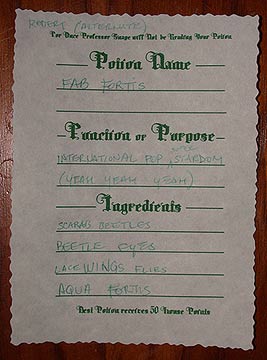 ROBERT (ALTERNATE)
For Once Professor Snape will Not be Grading Your Potion
Potion Name
FAB FORTIS
Function or Purpose
INTERNATIONAL POP STARDOM
(YEAH YEAH YEAH)
Ingredients
SCARABS BEETLES
BEETLE EYES
LACEWINGS FLIES
AQUA FORTIS
Best Potion receives 50 House Points